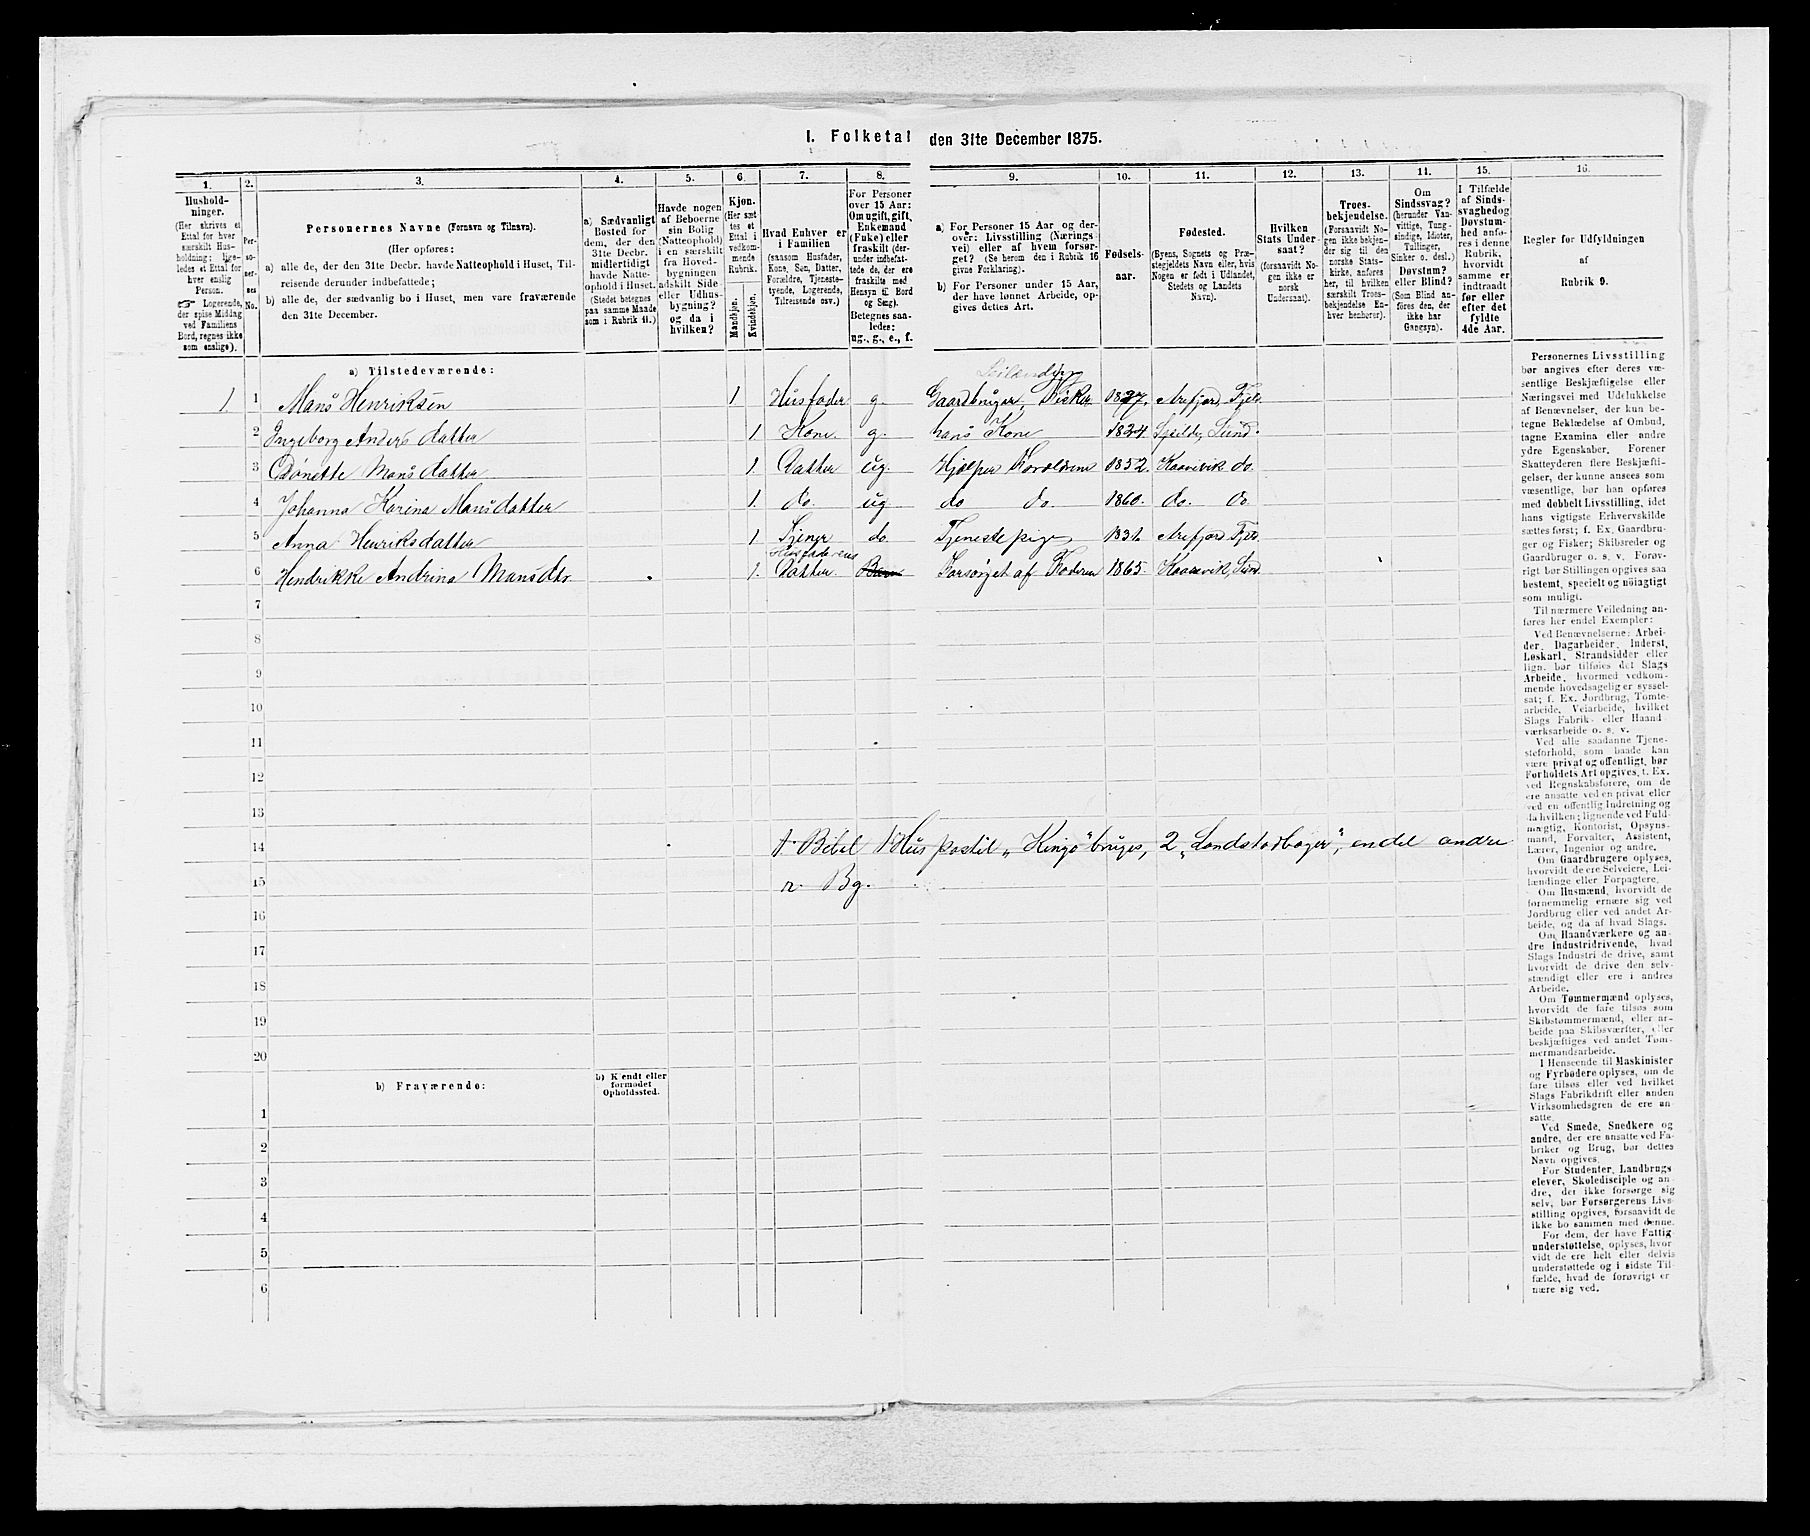 I. Folketal den 31te December 1875.
1. 2. 3. 4. 5. 6. 7. 8. 9. 10. 11. 12. 13. 14. 15. 16.
Hushold-
ninger.
(Her skrives et
Ettal for hver
særskilt Hus-
holdning; lige-
ledes et Ettal for
hver enslig
Person.
☞ Logerende,
der spise Middag
ved Familiens
Bord, regnes ikke
som enslige).
Per-
so-
ner-
nes
No.
Personernes Navne (Fornavn og Tilnavn).
(Her opføres:
a) alle de, der den 31te Decbr. havde Natteophold i Huset, Til-
reisende derunder indbefattede;
b) alle de, der sædvanlig bo i Huset, men vare fraværende
den 31te December.
a) Sædvanligt
Bosted for
dem, der den
31te Decbr.
midlertidigt
havde Natte-
ophold i Huset.
(Stedet betegnes
paa samme Maade
som i Rubrik 11.)
Havde nogen
af Beboerne
sin Bolig
(Natteophold)
i en særskilt
fra Hoved-
bygningen
adskilt Side
eller Udhus-
bygning?
og da i
hvilken?
Kjøn.
(Her sæt
tes et
Ettal i
vedkom-
mende
Rubrik.
Mandkjøn.
Kvindekjøn.
Hvad Enhver er
i Familien
(saasom Husfader,
Kone, Søn, Datter,
Forældre, Tjeneste-
tyende, Logerende,
Tilreisende osv.)
For Personer
over 15 Aar:
Om ugift, gift,
Enkemand
(Enke) eller
fraskilt (der-
under indbefat-
tede de, der ere
fraskilte med
Hensyn til Bord
og Seng).
Betegnes saa-
ledes:
ug., g., e., f.
a) For Personer 15 Aar og der-
over: Livsstilling (Nærings
vei) eller af hvem forsør-
get? (Se herom den i Rubrik 16
givne Forklaring).
b) For Personer under 15 Aar,
der have lønnet Arbeide, op-
gives dettes Art.
Fødsels-
aar.
Fødested.
(Byens, Sognets og Præ-
stegjeldets Navn eller, hvis
Nogen er født i Udlandet,
Stedets og Landets
Navn).
Hvilken
Stats Under-
saat?
(forsaavidt No-
gen ikke er
norsk
Undersaat).
Troes-
bekjendelse.
(Forsaavidt No-
gen ikke bekjen-
der sig til den
norske Stats-
kirke, anføres
her, til hvilken
særskilt Troes-
bekjendelse En-
hver henhører).
Om
Sindssvag?
(herunder Van-
vittige, Tung-
sindige, Idioter,
Tullinger,
Sinker o. desl.)
Døvstum?
eller Blind?
(Som Blind an-
føres den, der
ikke har
Gangsyn).
I Tilfælde
af Sinds-
svaghed og
Døvstum-
hed anfø-
res i denne
Rubrik,
hvorvidt
samme er
indtraadt
før eller
efter det
fyldte
4de Aar.
Regler for Udfyldningen
af
Rubrik 9.
a) Tilstedeværende:
Leilænding
1 1 Mans Henriksen 1 Husfader g. Gaardbruger, Fisker 1827. Arefjord, Fjels
2 Ingeborg Anders datter 1. Kone. g. hans Kone 1824 Sund.
3 Mans datter 1. Datter ug. Hjælper Forældrene 1852. Kaarevik do.
4 Johanna Karina Mansdatter 1. do. ug do do. 1860. do. do.
5 Anna Henriksdatter 1 Tjener do. Tjenestepige 1831. Arefjord Fjels.
Husfaderens
6 Hendrikke Andrina Mansdtr. 1. Datter. Barn Forsørget af Faderen 1865. Kaarevik, Sund
7
8
9
10
11
12
13
14 1. Bibel 1 Huspostil „Kingo“ bruges, 2 „Landstadbøger“, endel andre
15 r. Bg.
16
17
18
19
20
b) Fraværende:
b) Kjendt eller
formodet
Opholdssted.
1
2
3
4
5
6
Personernes Livsstilling
bør angives efter deres væ-
sentlige Beskjæftigelse eller
Næringsvei med Udelukkelse
af Benævnelser, der kun be-
tegne Beklædelse af Ombud,
tagne Examina eller andre
ydre Egenskaber. Forener
Skatteyderen flere Beskjæfti-
gelser, der kunne ansees som
væsentlige, bør han opføres
med dobbelt Livsstilling, idet
hans vigtigste Erhvervskilde
sættes først; f. Ex. Gaardbru-
ger og Fisker; Skibsreder og
Gaardbruger o. s. v. Forøv-
rigt bør Stillingen opgives saa
bestemt, specielt og nøiagtigt
som muligt.
Til nærmere Veiledning an-
føres her endel Exempler:
Ved Benævnelserne: Arbei-
der, Dagarbeider, Inderst,
Løskarl, Strandsidder eller
lign. bør tilføies det Slags
Arbeide, hvormed vedkom-
mende hovedsagelig er syssel-
sat; f. Ex. Jordbrug, Tomte-
arbeide, Veiarbeide, hvilket
Slags Fabrik- eller Haand
værksarbeide o. s. v.
Ved alle saadanne Tjene-
steforhold, som baade kan
være privat og offentligt, bør
Forholdets Art opgives, f. Ex.
ved Regnskabsførere, om de
ere ansatte ved en privat eller
ved en offentlig Indretning og
da hvilken; lignende ved Fuld-
mægtig, Kontorist, Opsyns-
mand, Forvalter, Assistent,
Lærer, Ingeniør og andre.
Om Gaardbrugere oplyses,
hvorvidt de ere Selveiere, Lei-
lændinge eller Forpagtere.
Om Husmænd, hvorvidt de
fornemmelig ernære sig ved
Jordbrug eller ved andet Ar-
beide, og da af hvad Slags.
Om Haandværkere og an-
dre Industridrivende, hvad
Slags Industri de drive, samt
hvorvidt de drive den selv-
stændigt eller ere i andres
Arbeide.
Om Tømmermænd oplyses,
hvorvidt de fare tilsøs som
Skibstømmermænd, eller ar-
beide paa Skibsværfter, eller
beskjæftiges ved andet Tøm-
mermandsarbeide.
I Henseende til Maskinister
og Fyrbødere oplyses, om de
fare tilsøs eller ved hvilket
Slags Fabrikdrift eller anden
Virksomhedsgren de ere an-
satte.
Ved Smede, Snedkere og
andre, der ere ansatte ved Fa-
briker og Brug, bør dettes
Navn opgives.
For Studenter, Landbrugs
elever, Skoledisciple og an-
dre, der ikke forsørge sig
selv, bør Forsørgerens Livs-
stilling opgives, forsaavidt de
ikke bo sammen med denne.
For dem, der have Fattig
understøttelse, oplyses, hvor
vidt de ere helt eller delvis
understøttede og i sidste Til-
fælde, hvad de forøvrigt er
nære sig ved.